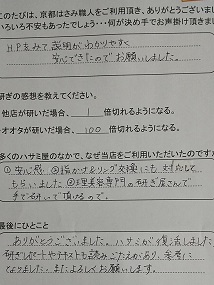 このたびは、京都はさみ職人をご利用頂き、ありがとうございま
いろいろ不安もあったでしょう・・・何が決め手でお声掛け頂きま
HPをみて説明がわかりやすく
安心できたのでお願いしました。
研ぎの感想を教えてください。
他店が研いだ場合、1倍切れるようになる。
オオタが研いだ場合、100倍切れるようになる。
多くのハサミ屋のなかで、なぜ当店をご利用いただいたのですか
①安心感 ②指かけ&リング交換にも対応して
もらいました ③理美容専門の研ぎ屋さんで
手で研いで頂けるので。
最後にひとこと
ありがとうございました。ハサミが復活しました
研ぎレポートやテキストも読みごたえがあり、参考に
なりました。またよろしくお願いします。